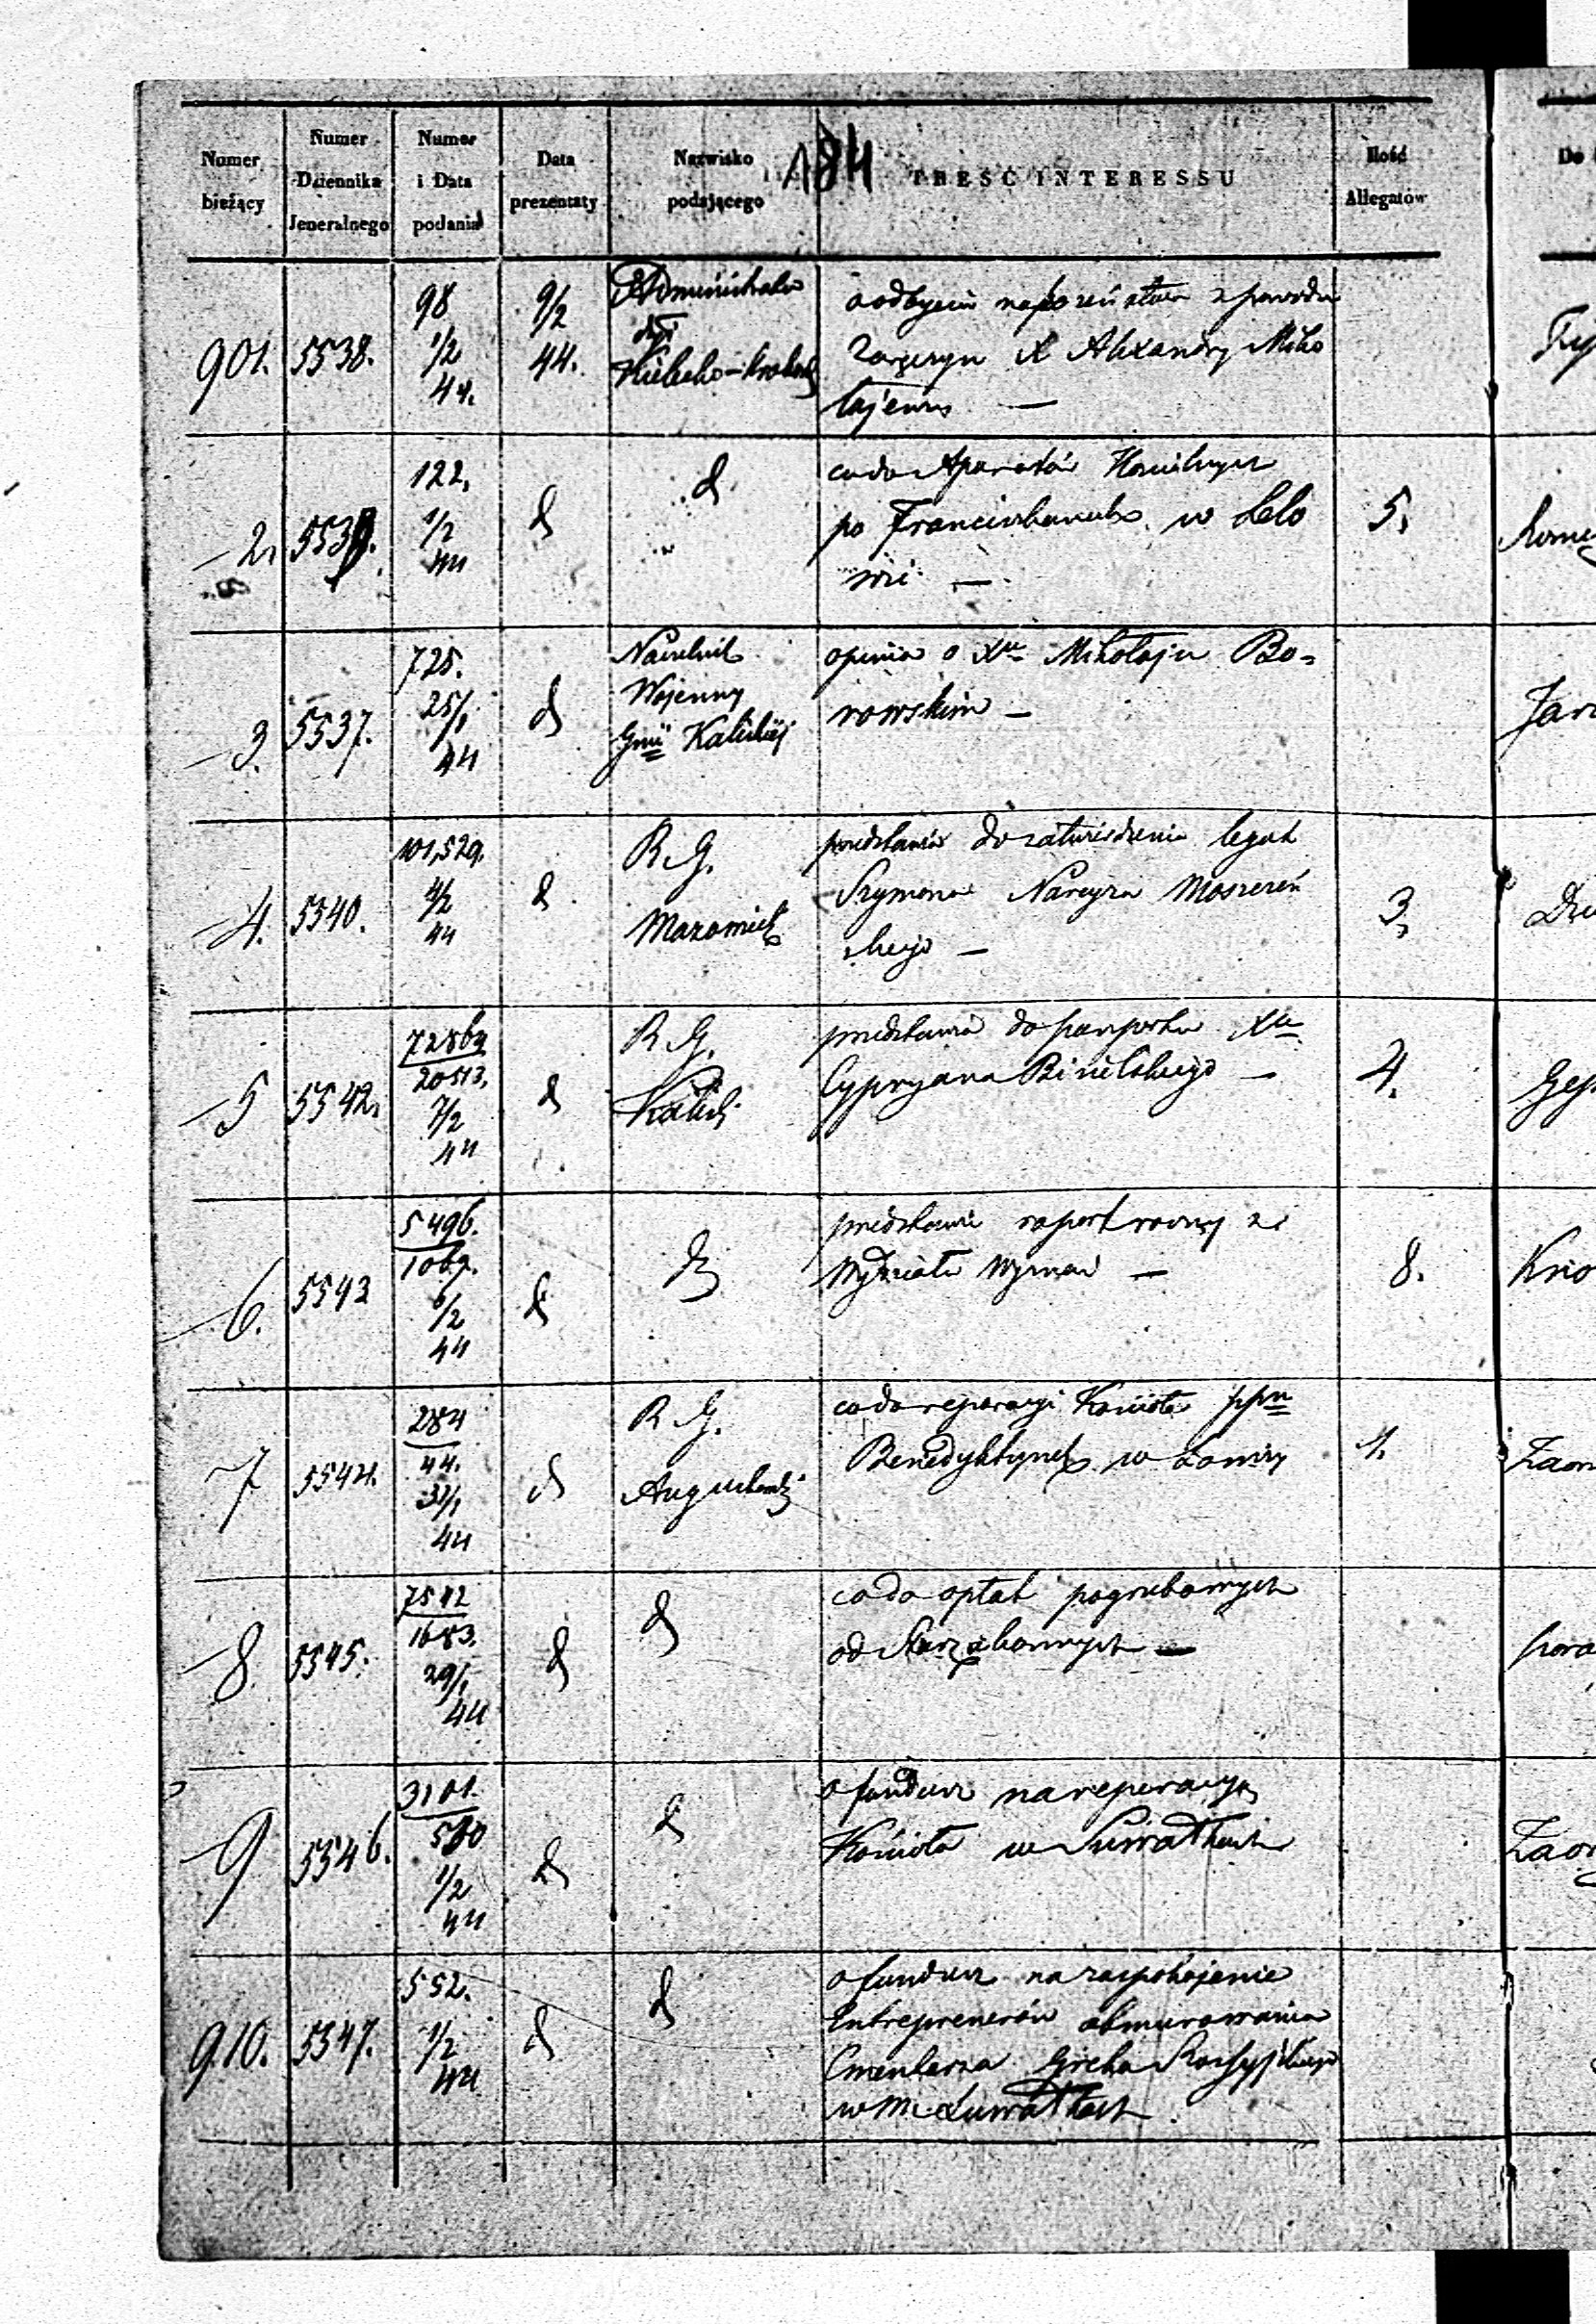 184
Numer bieżący
Numer Dziennika Jeneralnego
Numer i Data podania
Data prezentaty
Nazwisko podającego
TREŚĆ INTERESSU
Ilość Allegatów
Do
901. 5538. 98 1/2 44. 9/2 44. Administrator
Kielecko-Krakows
o odbyciu nabożeństwa z powodu
Zaręczyn X Alexandry Miko
łajewny —
2. 122. 1/2 44
co do Aparatów
po Franciszkanach w Lelo
wie —
5.
3. 5537. 725. 25/1 44
Naczelnik
Wojenny
Gnii Kaliskiej
opinia o Xu Mikołaju Bo=
rowskim —
4. 5540. 101,529. 4/2 44
R. G.
Mazowieck
przedstawia do zatwierdzenia legat
Szymona Narcyza Moszczeń
skiego —
3.
5 5542. 20513. 7/2 44
R. G.
Kalisk
przedstawia do paszportu Xa
Cypryana —
4.
6. 5543 5496. 6/2 44
przedstawia raport roczny z
Wydziału Wyznań —
8.
7 5544. 284 44. 31/1 44
R. G.
Augustowski
co do reparacyi Kościoła ppn
Benedyktynek w Łomży
4.
8. 5545. 7542 1683. 29/1 44
co do opłat pogrzebowych
od Skarbowych —
9 5546. 3101. 1/2 44
o fundusz na reperacyą
Kościoła w Suwałkach
910. 5547. 552. 1/2 44
o fundusz na zaspokojenie
Entreprenerów obmurowania
Cmentarza Greko Rossyjskiego
w Mi Suwałkach